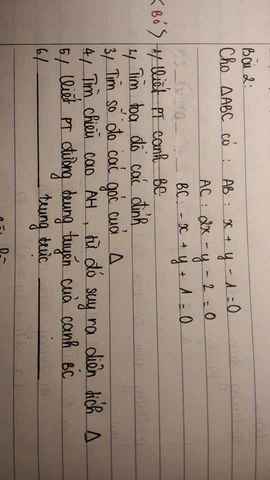 Bài 2:
Cho ΔABC có : AB : x + y - 1 = 0
AC : 2x - y - 2 = 0
BC : -x + y + 1 = 0
(Bỏ) 1/ Viết PT cạnh BC
2/ Tìm toạ độ các đỉnh
3/ Tìm số đo các góc của Δ
4/ Tìm chiều cao AH, từ đó suy ra diện tích Δ
5/ Viết PT đường trung tuyến của cạnh BC
6/ ______ trung trực ______